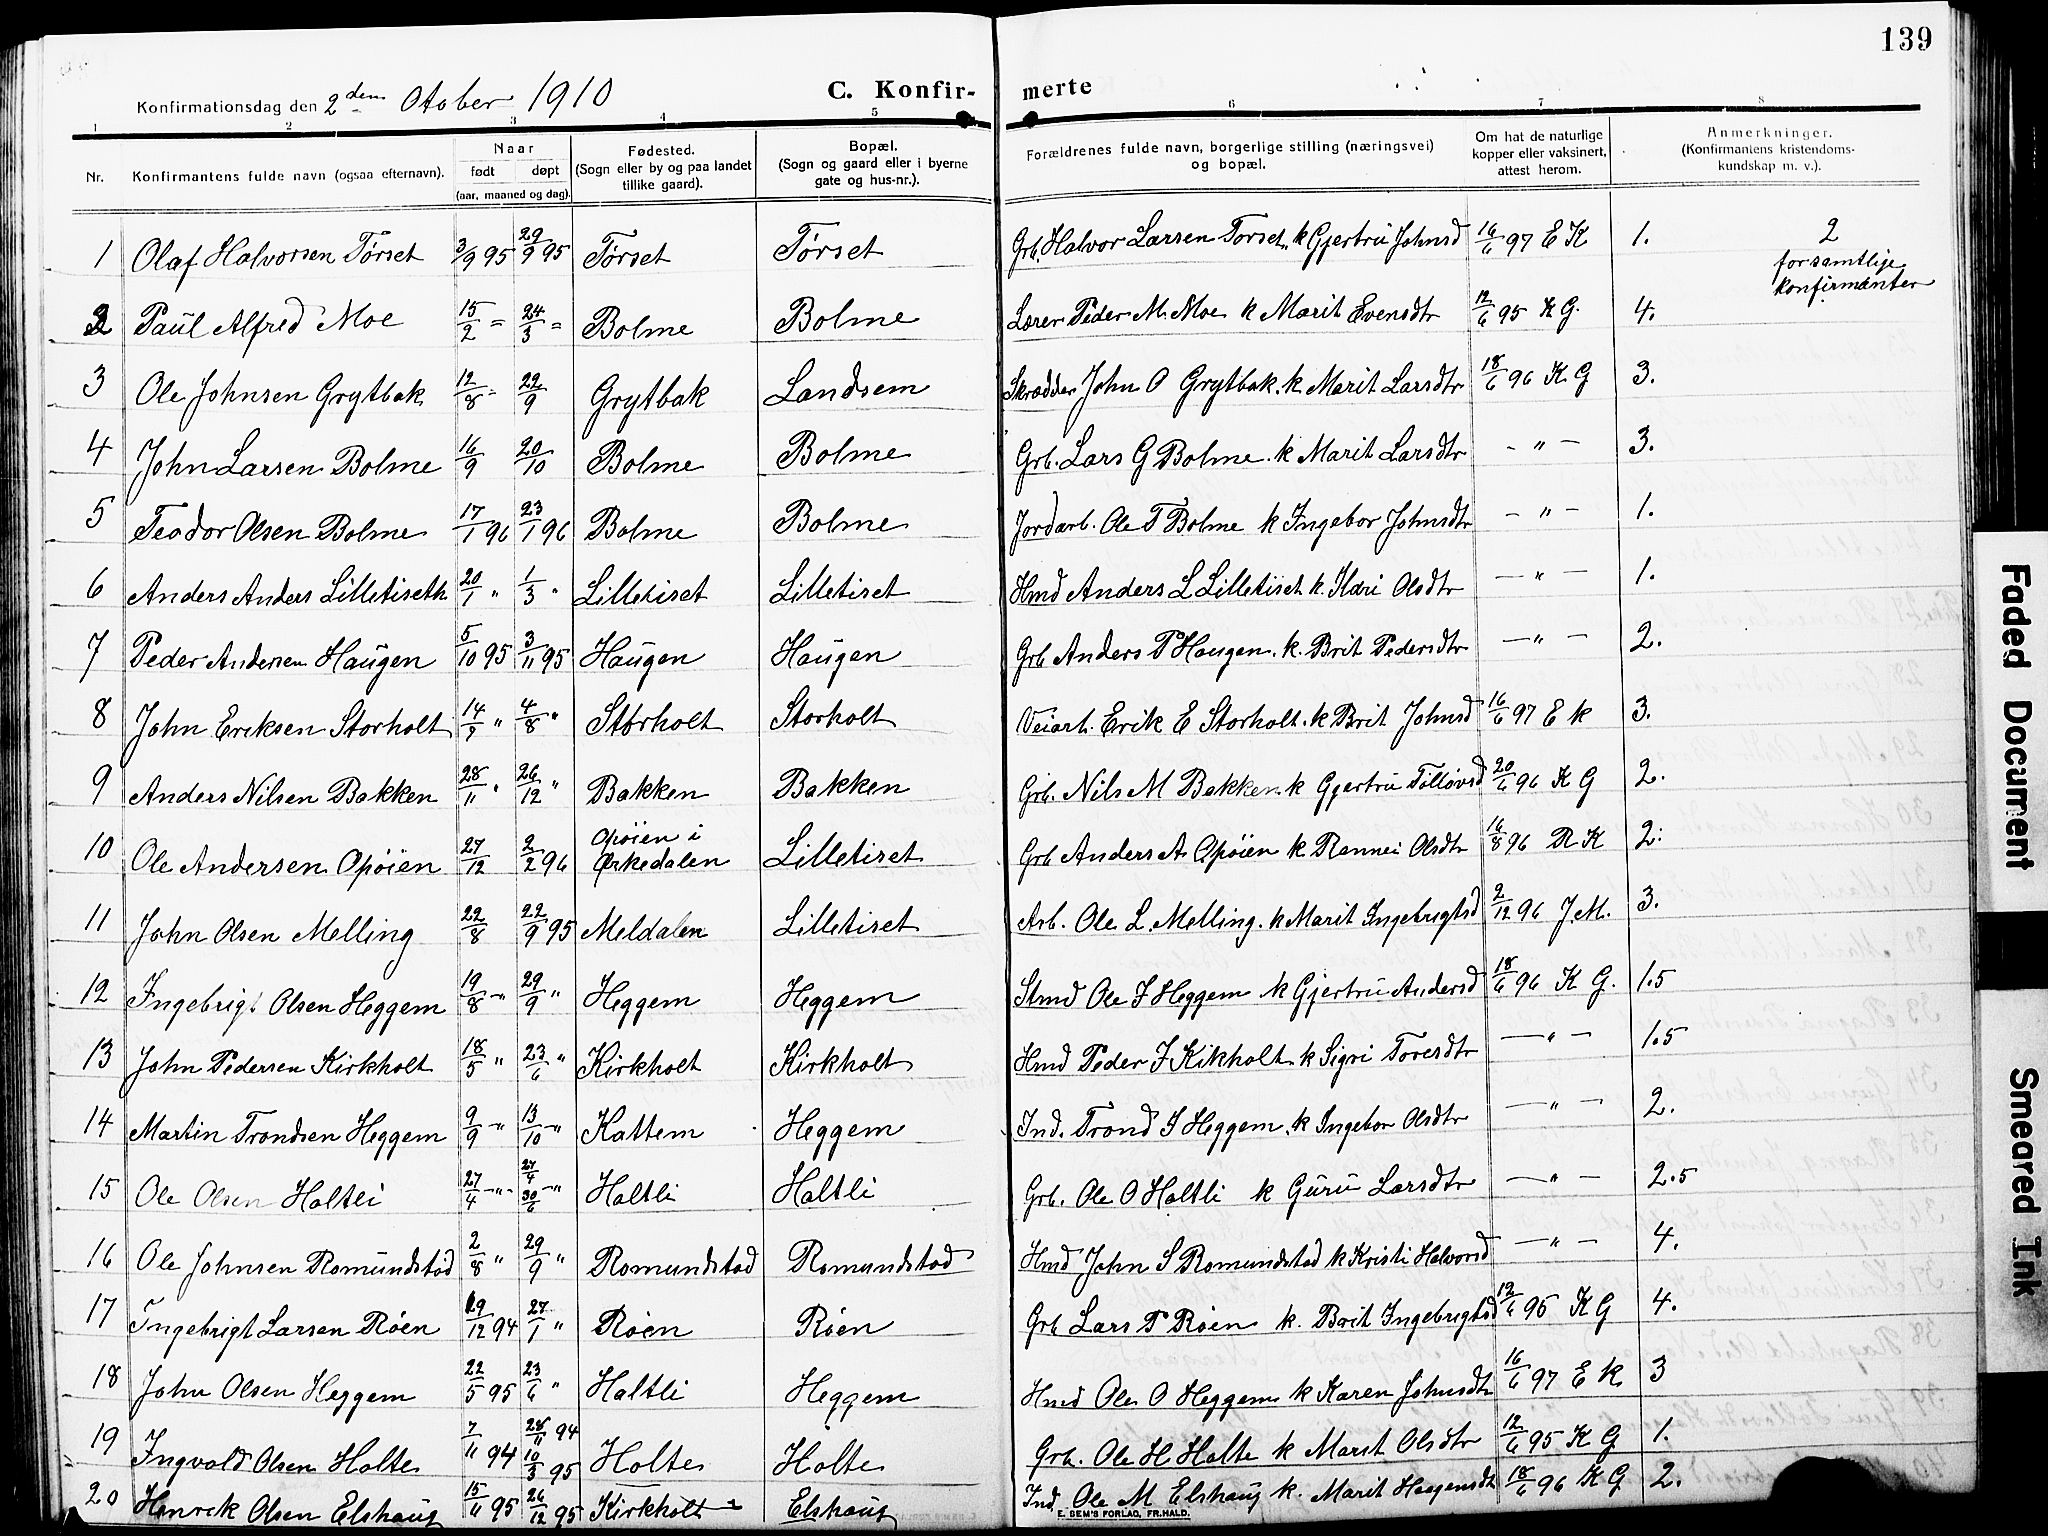 139
Konfirmationsdag den 2den Otober 1910 C. Konfir- merte
1 2 3 4 5 6 7 8
Nr. Konfirmantens fulde navn (ogsaa efternavn). Naar født døpt (aar, maaned og dag). Fødested. (Sogn eller by og paa landet tillike gaard). Bopæl. (Sogn og gaard eller i byerne gate og hus-nr.). Forældrenes fulde navn, borgerlige stilling (næringsvei) og bopæl. Om hat de naturlige kopper eller vaksinert, attest herom. Anmerkninger. (Konfirmantens kristendoms-kundskap m. v.).
1 Olaf Halvorsen Tørset 3/9 95 29/9 95 Tørset Tørset Grb. Halvor Larsen Torset, k Gjertru Johnsd 16/6 97 E K 1. 2 for samtlige konfirmanter
2 Paul Alfred Moe 15/2 = 24/3 = Bolme Bolme Lærer Peder M. Moe k Marit Evensdtr 12/6 95 K G. 4.
3 Ole Johnsen Grytbak 12/8 - 22/9 Grytbak Landsem Skrædder John O Grytbak. k. Marit Larsdtr 18/6 96 K G 3.
4 John Larsen Bolme 16/9 20/10 Bolme Bolme Grb. Lars G Bolme. k Marit Larsdtr - " - 3.
5 Teodor Olsen Bolme 17/1 96 23/1 96 Bolme Bolme Jordarb. Ole T Bolme k Ingebor Johnsdtr - " - 1.
6 Anders Anders Lilletiseth 20/1 " 1/3 " Lilletiset Lilletiset Hmd Anders L Lilletiset k. Kari Olsdtr - " - 1.
7 Peder Andersen Haugen 5/10 95 3/11 95 Haugen Haugen Grb Anders P Haugen. k. Brit Pedersdtr - " - 2.
8 John Eriksen Storholt 14/7 " 4/8 " Storholt Storholt Veiarb. Erik E Storholt. k Brit Johnsd 16/6 97 E k 3.
9 Anders Nilsen Bakken 28/11 " 26/12 " Bakken Bakken Grb. Nils M Bakken. k Gjertru Tølløvsd 20/6 96 K G 2.
10 Ole Andersen Opøien 27/12 2/2 96 Opøien i Ørkedalen Lilletiset Grb Anders A. Opøien k Rannei Olsdtr 16/8 96 R K 2.
11 John Olsen Melling 22/8 22/9 95 Meldalen Lilletiset Arb. Ole L. Melling. k Marit Ingebrigtsd 2/12 96 J. M. 3.
12 Ingebrigt Olsen Heggem 19/8 -"- 29/9 " Heggem Heggem Stmd Ole I Heggem k Gjertru Andersd 18/6 96 K G. 1.5
13 John Pedersen Kirkholt 18/5 " 23/6 " Kirkholt Kirkholt Hmd Peder I Kikholt k Sigri Toresdtr - " - 1.5
14 Martin Trondsen Heggem 9/9 -"- 13/10 -"- Kattem Heggem Ind. Trond I Heggem. k Ingebor Olsdtr - " - 2.
15 Ole Olsen Holtli 27/4 -"- 27/4 30/6 -"- Holtli Holtli Grb. Ole O Holtli k Guru Larsdtr - " - 2.5
16 Ole Johnsen Romundstad 2/8 " 29/9 " Romundstad Romundstad Hmd John S Romundstad k Kristi Halvorsd - " - 4.
17 Ingebrigt Larsen Røen 19/12 94 27/1 " Røen Røen Grb Lars P Røen k. Brit Ingebrigtsd 12/6 95 K G 4.
18 John Olsen Heggem 22/5 95 23/6 " Holtli Heggem Hmd Ole O Heggem k Karen Johnsdtr 16/6 97 E k 3
19 Ingvald Olsen Holte 7/11 94 28/11 94 10/3 95 Holte Holte Grb. Ole H Holte k Marit Olsdtr 12/6 95 K G 1.
20 Henrek Olsen Elshaug 15/11 95 26/12 95 Kirkholt Elshaug Ind. Ole M Elshaug k. Marit Haagensdtr 18/6 96 K G 2.
E. SEM'S FORLAG, FR.HALD.
Faded Document
Smeared Ink